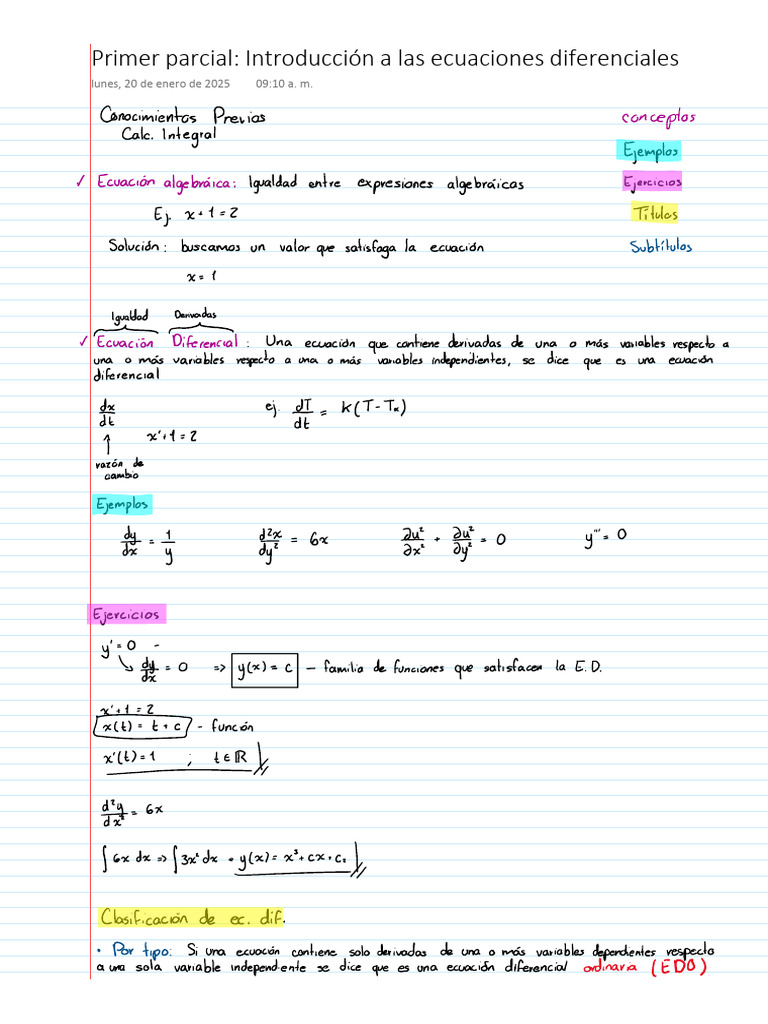 Primer parcial: Introducción a las ecuaciones diferenciales
lunes, 20 de enero de 2025 09:10 a. m.
Conocimientos Previos
conceptos
Calc. Integral
Ejemplos
✓ Ecuación algebráica: Igualdad entre expresiones algebráicas
Ejercicios
Ej. x + 1 = 2
Títulos
Solución: buscamos un valor que satisfaga la ecuación
Subtítulos
x = 1
Igualdad Derivadas
✓ Ecuación Diferencial: Una ecuación que contiene derivadas de una o más variables respecto a
una o más variables respecto a una o más variables independientes, se dice que es una ecuación
diferencial
dx/dt
ej. dT/dt = k(T - Tₐ)
x' + 1 = 2
↑
razón de
cambio
Ejemplos
dy/dx = 1/y d²x/dy² = 6x ∂u²/∂x² + ∂u²/∂y² = 0 y''' = 0
Ejercicios
y' = 0 -
dy/dx = 0 => y(x) = c — familia de funciones que satisfacen la E.D.
x' + 1 = 2
x(t) = t + c - función
x'(t) = 1 ; t ∈ ℝ
d²y/dx² = 6x
∫6x dx => ∫3x² dx = y(x) = x³ + cx + c₂
Clasificación de ec. dif.
• Por tipo: Si una ecuación contiene solo derivadas de una o más variables dependientes respecto
a una sola variable independiente se dice que es una ecuación diferencial ordinaria (EDO)